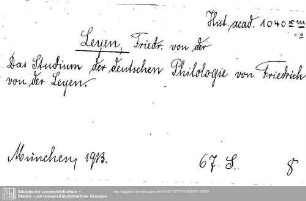 Hist. acad. 1040
Leyen, Friedr. von der
Das Studium der deutschen Philologie von Friedrich
von der Leyen.
München, 1913. 67 S. 8
Sächsische Landesbibliothek -
Staats- und Universitätsbibliothek Dresden